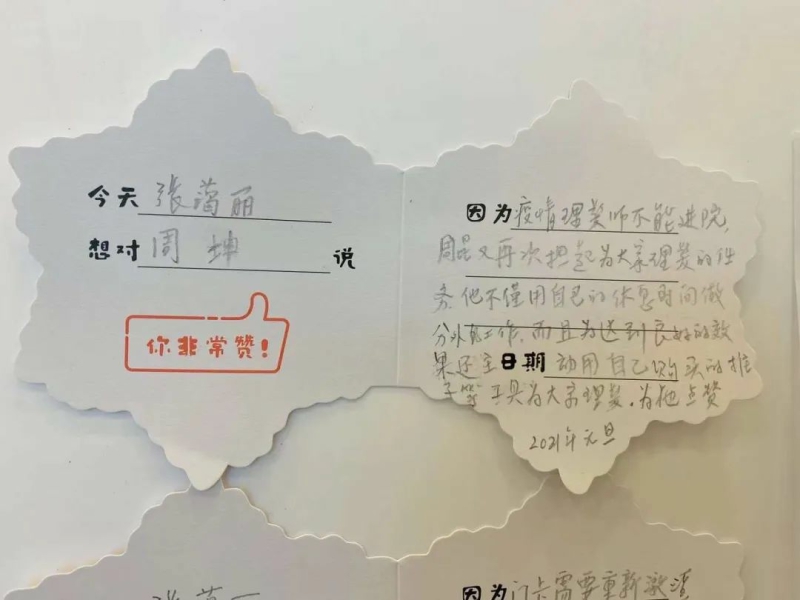 今天 张蔼丽
想对 周坤 说
你非常赞!
因为疫情理发师不能进院,
周昆又再次担起为大家理发的任
务.他不仅用自己的休息时间做
分外的工作,而且为达到良好的效
果还主日期动用自己购买的推
子等工具为大家理发.为他点赞
2021年元旦
因为门卡需要重新激活